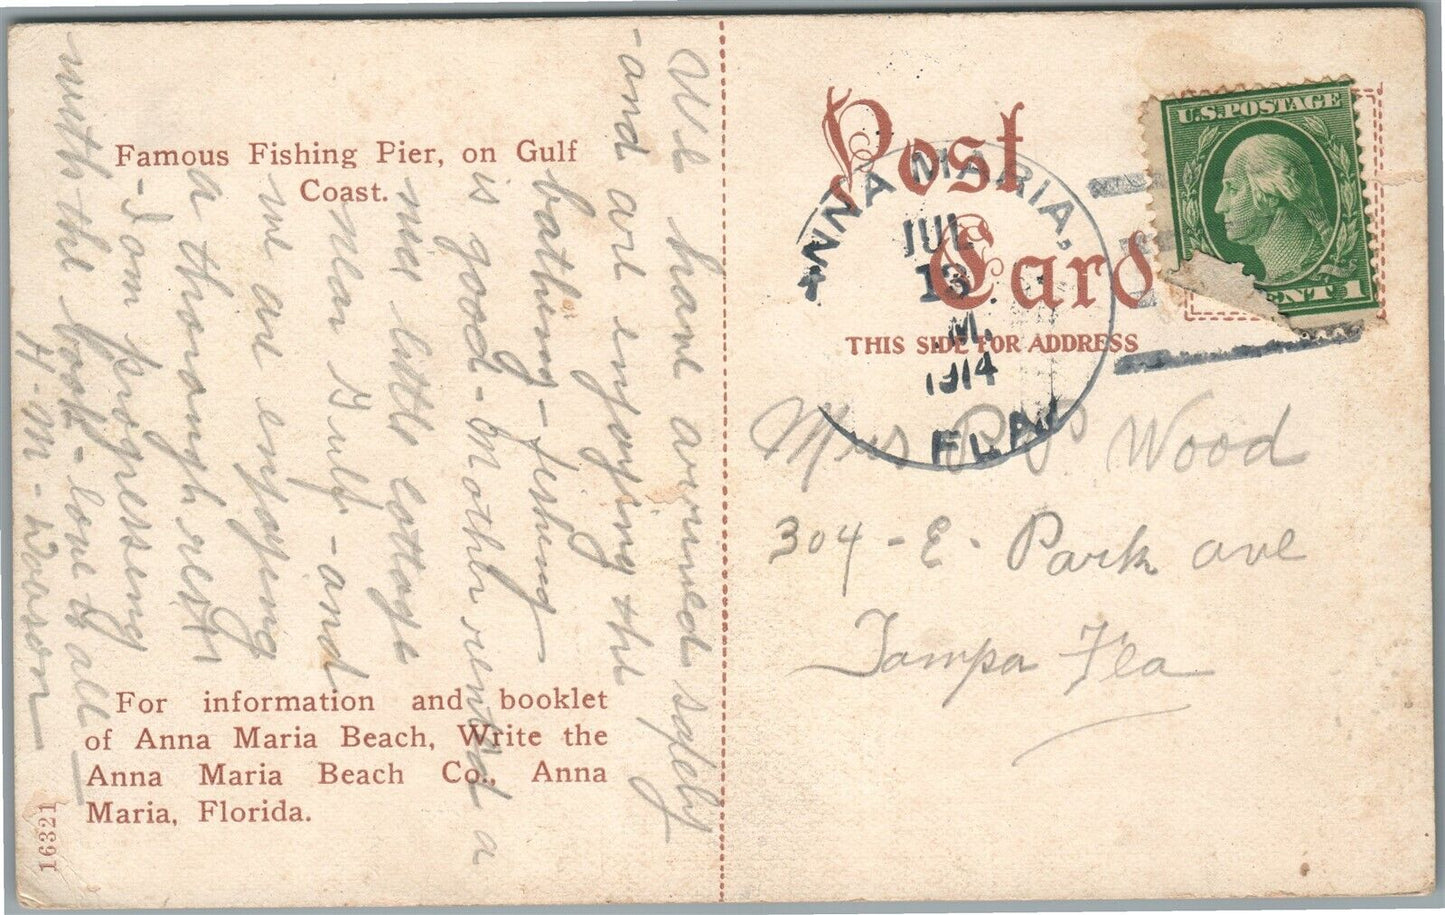 Famous Fishing Pier, on Gulf
Coast.
We have arrived safely
-and are enjoying the
bathing-fishing
is good-Mother rented a
nice little cottage
near gulf-and
we are enjoying
a thorough rest
-I am progressing
with the book-love to all
H-M-
For information and booklet
of Anna Maria Beach, Write the
Anna Maria Beach Co., Anna
Maria, Florida.
16321
Post
Card
THIS SIDE FOR ADDRESS
ANNA MARIA,
JUL
13
M.
1914
FLA
U.S.POSTAGE
CENT 1
Mrs Wood
304-E. Park ave
Tampa Fla